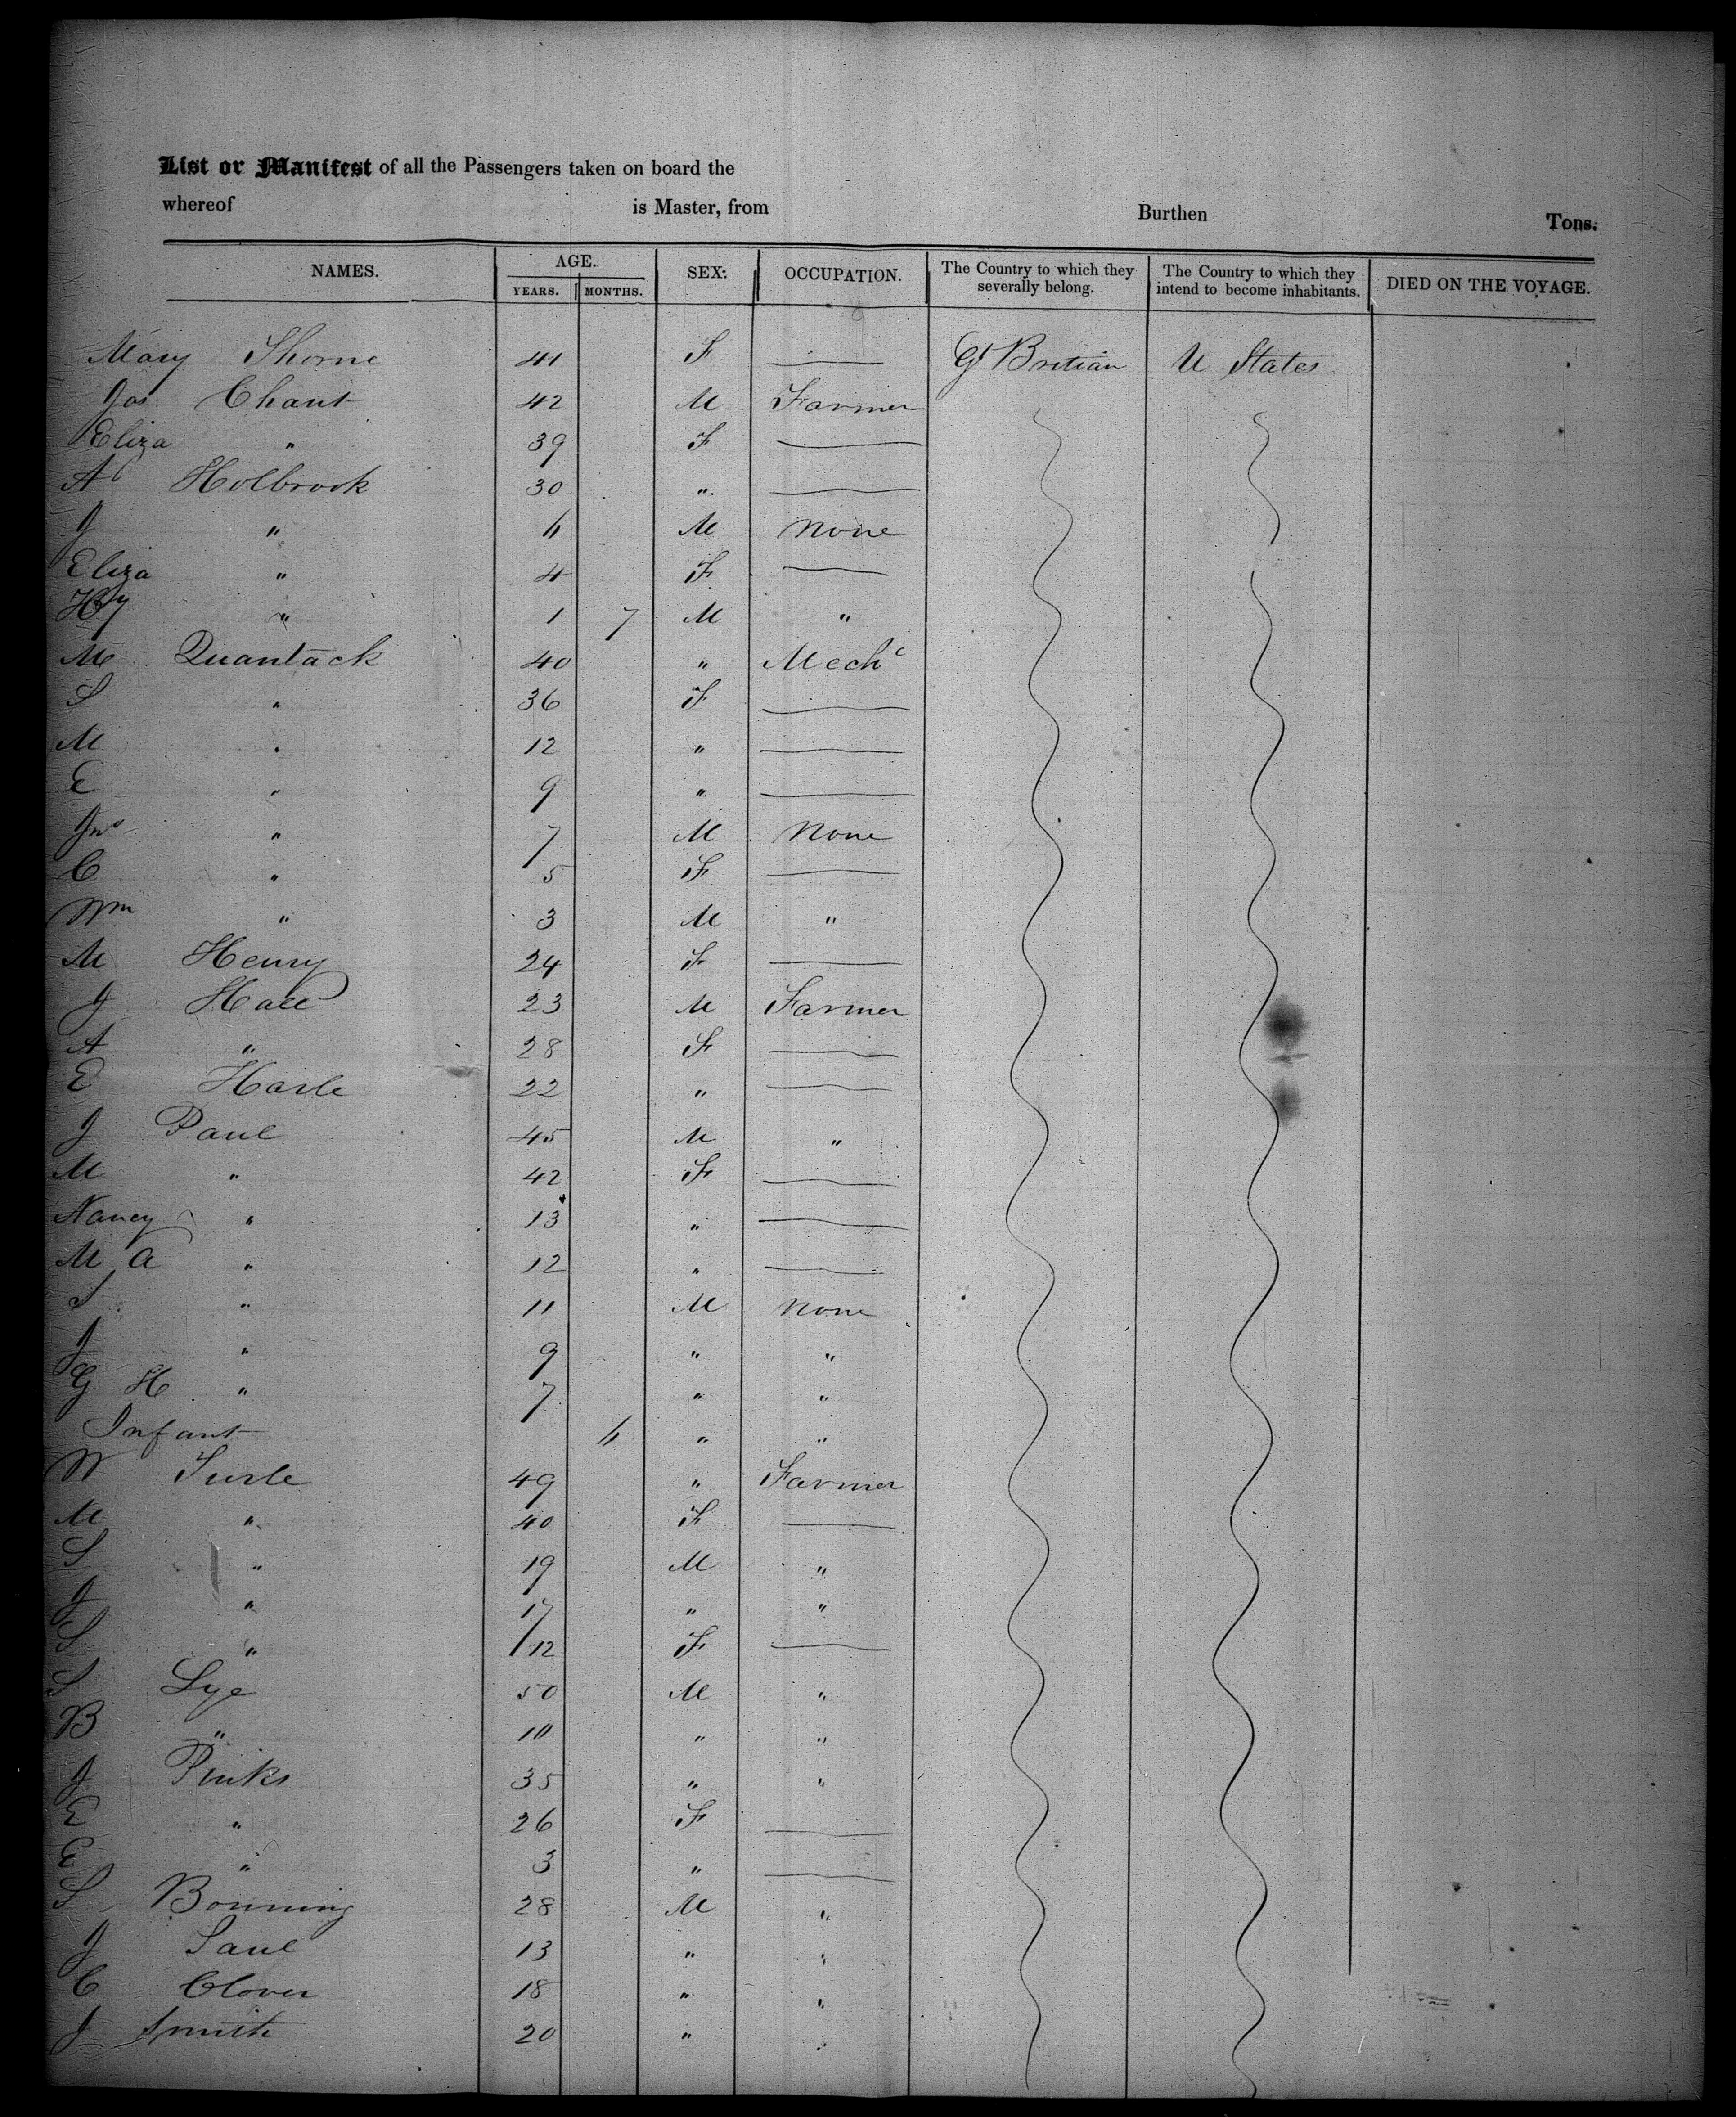 List or Manifest of all the Passengers taken on board the
whereof is Master, from Burthen Tons.
NAMES. AGE. YEARS. MONTHS. SEX: OCCUPATION. The Country to which they severally belong. The Country to which they intend to become inhabitants. DIED ON THE VOYAGE.
Mary Thorne 41 F — Gt Britian U States
Jas Chant 42 M Farmer
Eliza " 39 F —
A Holbrook 30 " —
J " 6 M None
Eliza " 4 F —
Hy " 1 7 M "
M Quantack 40 " Mechc
S " 36 F —
M " 12 " —
E " 9 " —
Jno " 7 M None
C " 5 F —
Wm " 3 M "
M Henry 24 F —
J Hall 23 M Farmer
A " 28 F —
E Harle 22 " —
J Paul 45 M "
M " 42 F —
Nancy " 13 " —
M A " 12 " —
S " 11 M None
J " 9 " "
G H " 7 " "
Infant 6 " "
W Turle 49 " Farmer
M " 40 F —
S " 19 M "
J " 17 " "
S " 12 F —
S Lye 50 M "
B " 10 " "
J Pinks 35 " "
E " 26 F —
E " 3 " —
S Bonning 28 M "
J Saul 13 " "
C Clover 18 " "
J Smith 20 " "